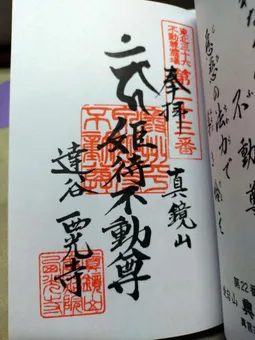 東北三十六
不動尊霊場
第二十三番
奉拝 真鏡山
姫待不動尊
達谷 西光寺
不動
の法力で
第22番
興